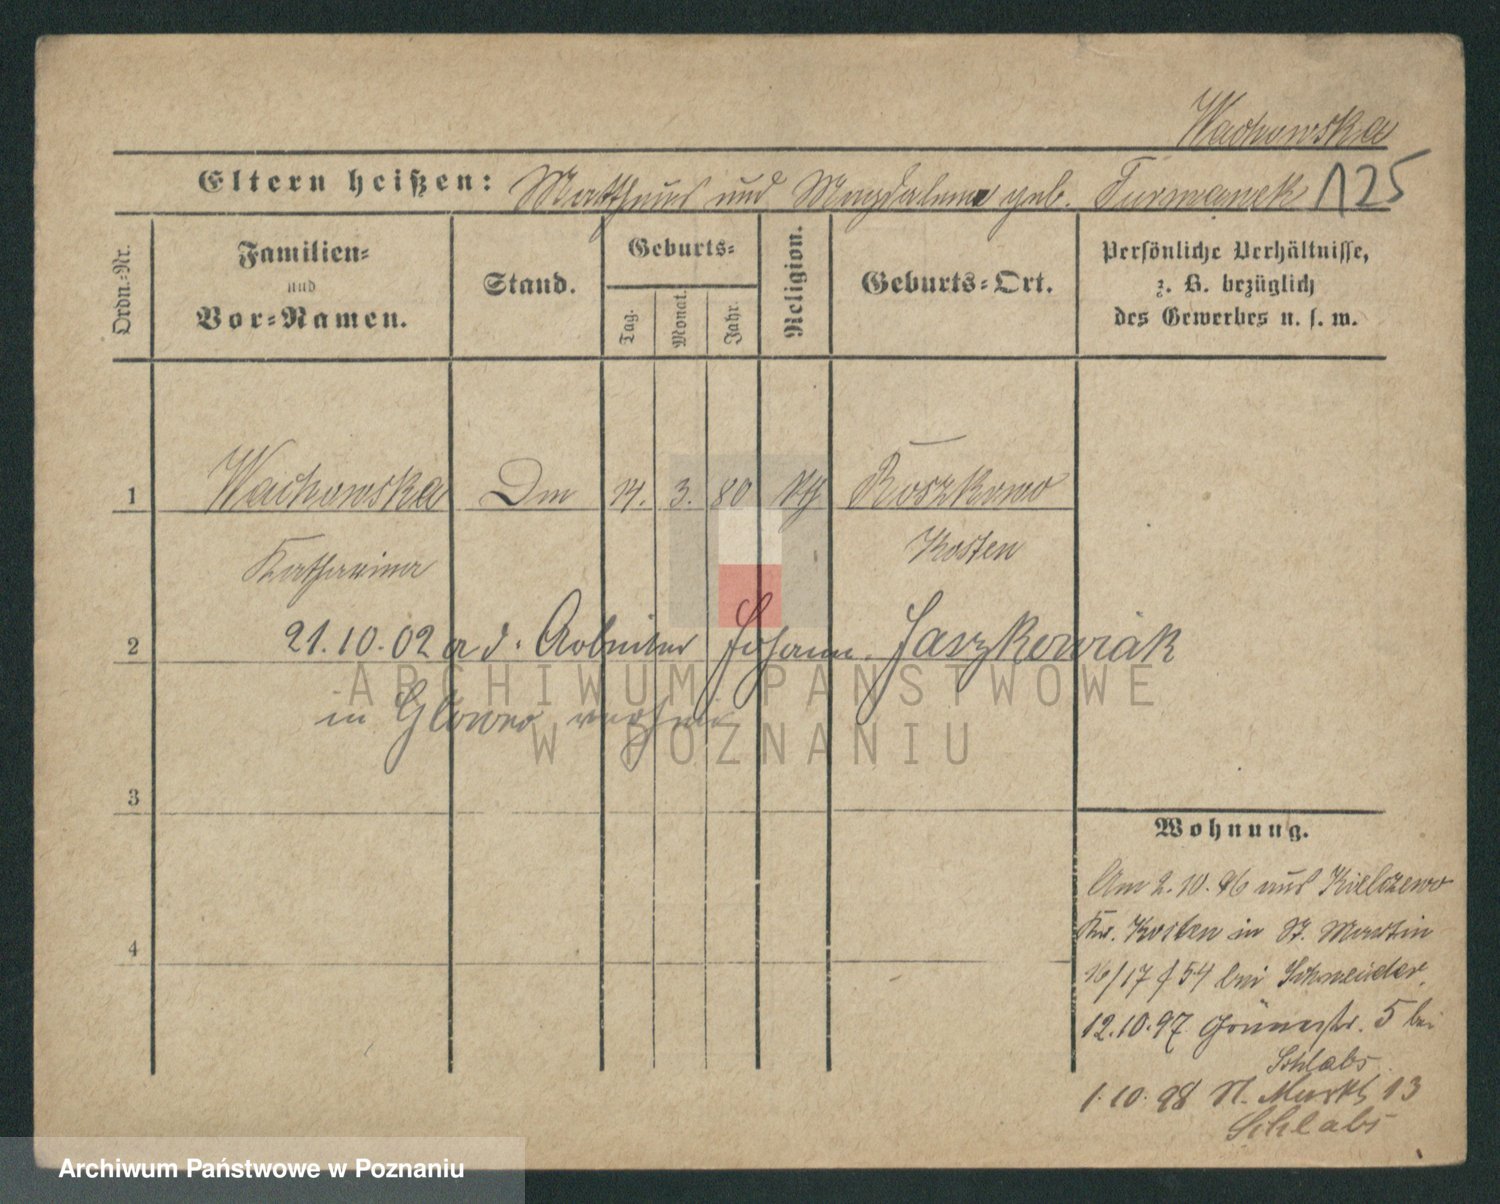 Wachowska
Eltern heißen: Matthäus und Magdalena geb. Turwanek 125
Ordn.-Nr.
Familien-
und
Vor-Namen.
Stand.
Geburts-
Tag.
Monat.
Jahr.
Religion.
Geburts-Ort.
Persönliche Verhältnisse,
z. B. bezüglich
des Gewerbes u. s. w.
1 Wachowska 14. 3. 80 Roszkowo
Katharina Kosten
2 21.10.02 a d. Arbeiter Johann Jaszkowiak
in Glowno
3
4
Wohnung.
Am 2.10.96 aus Kielczewo
Kr. Kosten in St. Martin
16/17 f 54 bei Schneider.
12.10.97 Grünestr. 5 bei
Schlabs.
1.10.98 N. Markt 13
Schlabs
ARCHIWUM PAŃSTWOWE
W POZNANIU
Archiwum Państwowe w Poznaniu